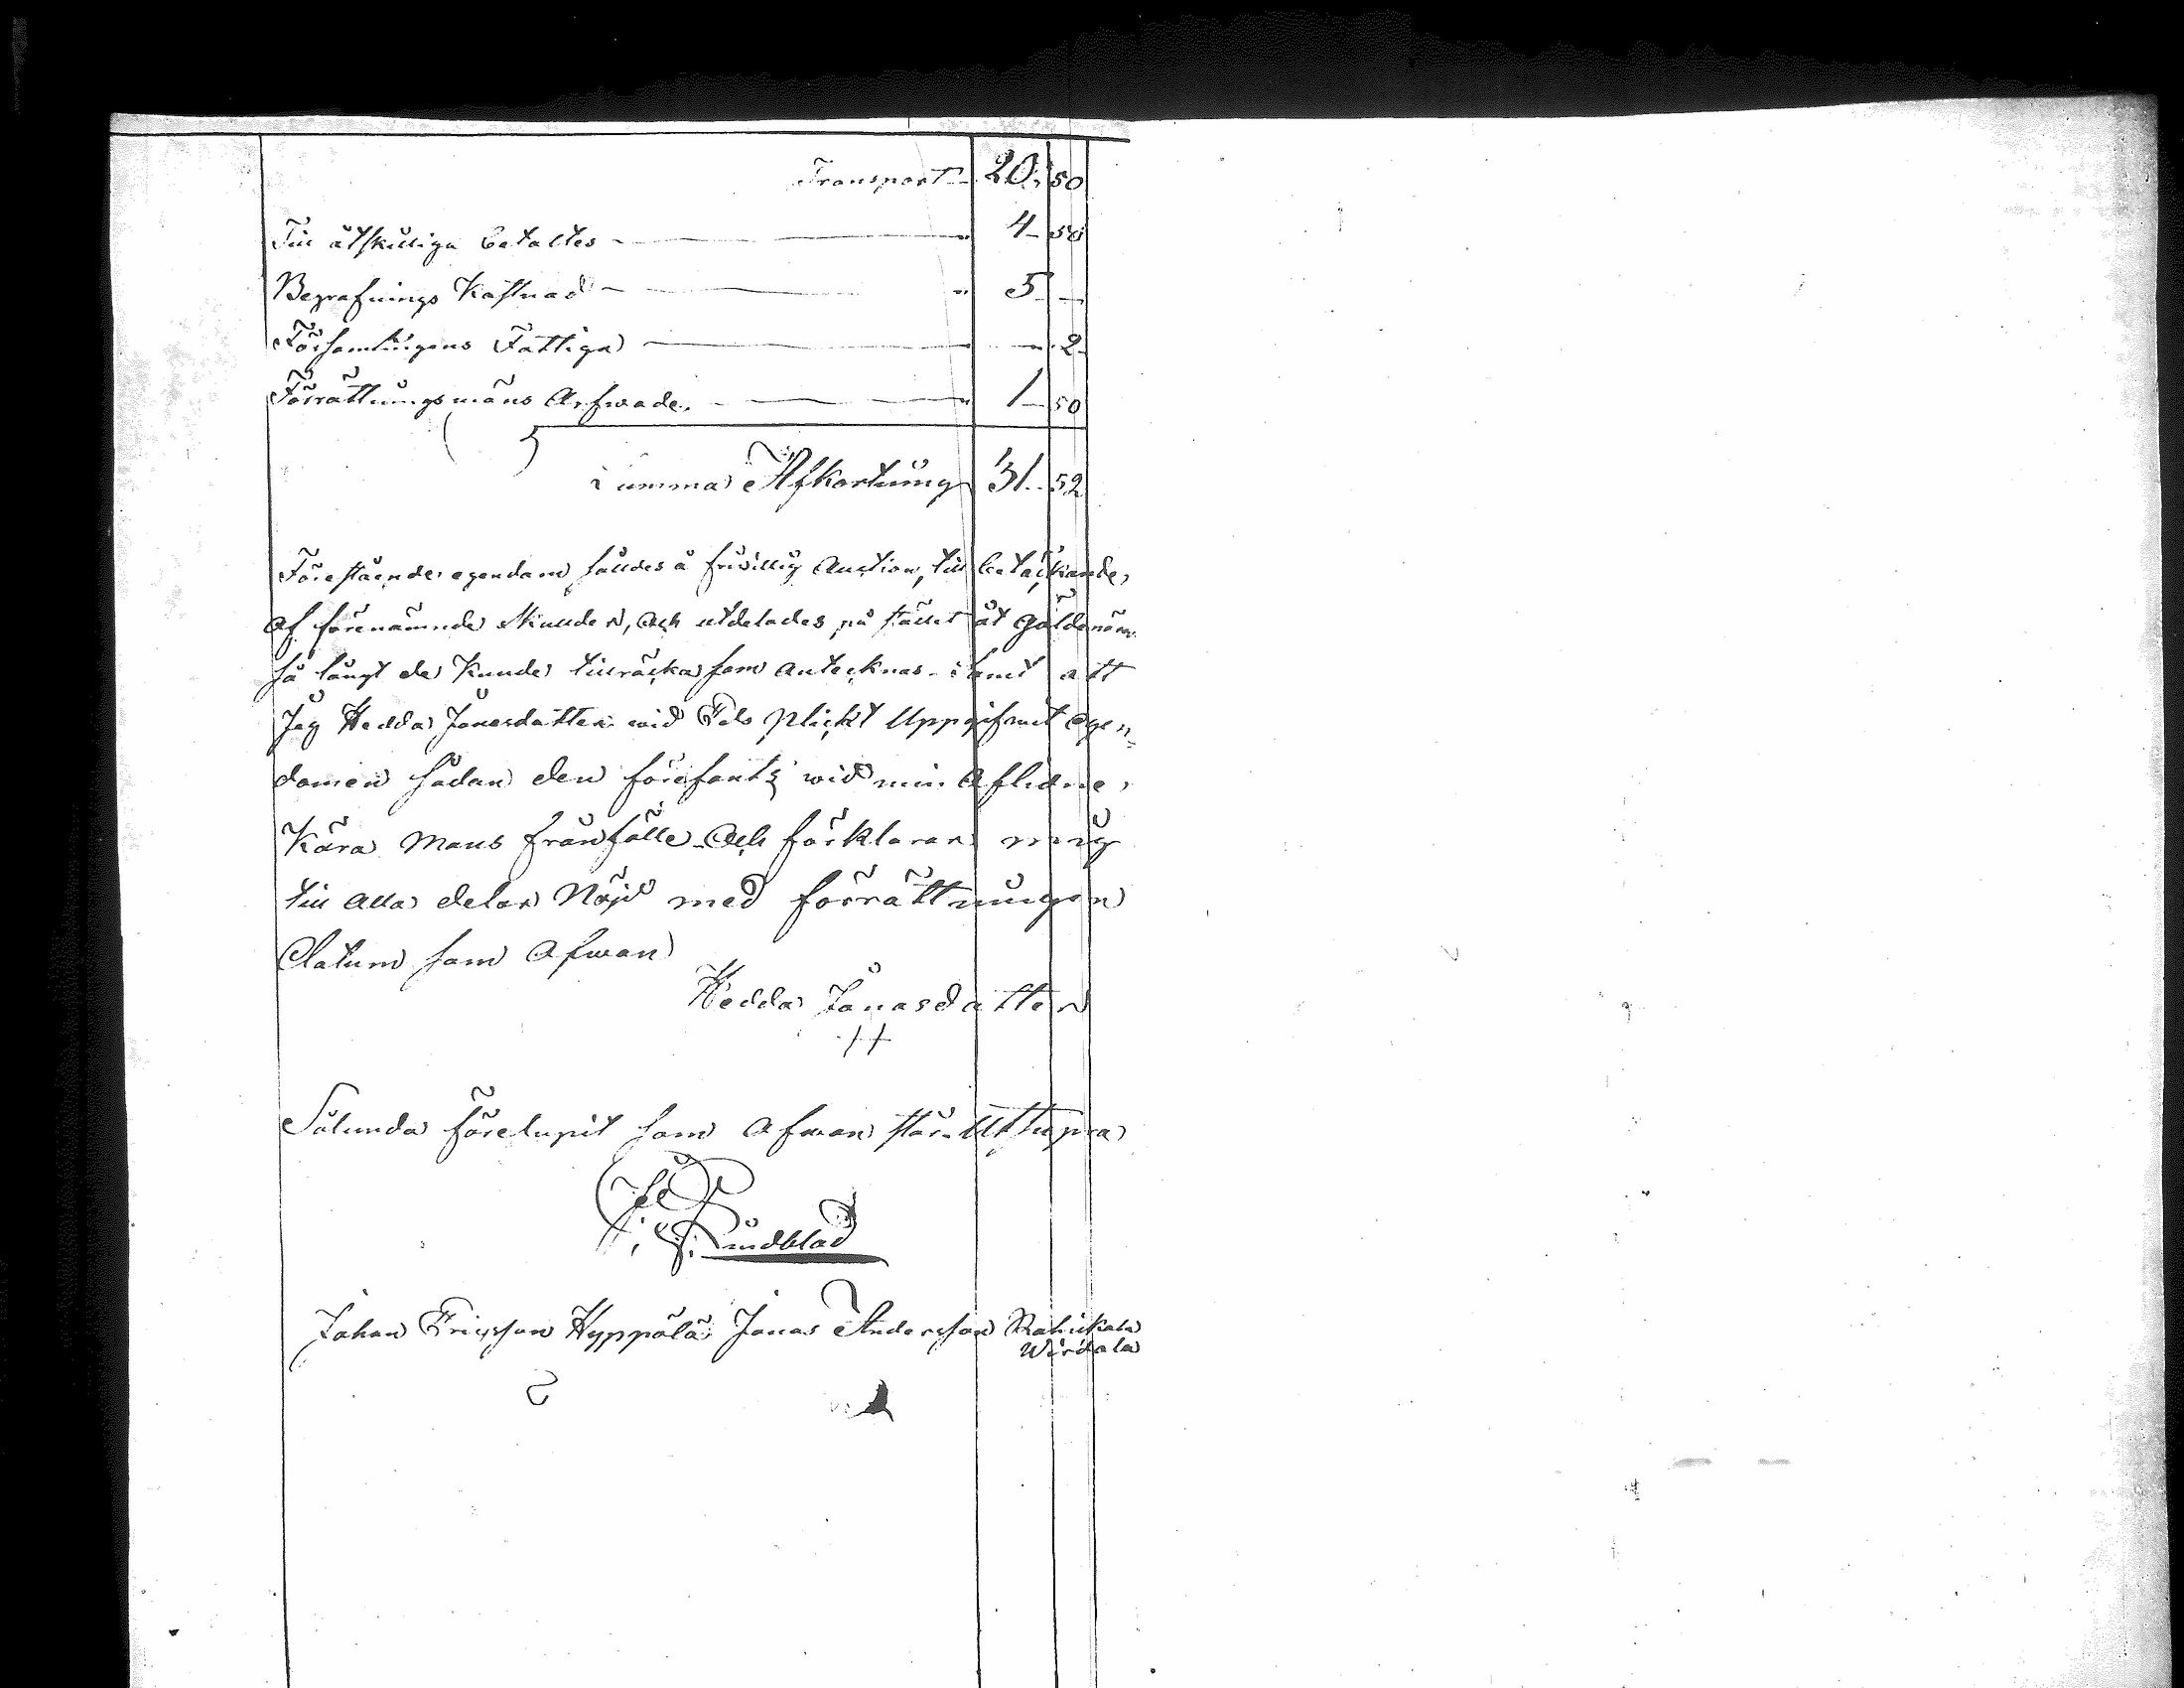 Transport 20, 50
Till åtskilliga betaltes 4 50
Begrafnings Kostnad 5 —
Församlingens Fattiga — 2
Förrättningsmäns Arfwade 1 50
Summa Afkortning 31 52
Förestående egendom såldes å friwillig Auction, till betäckande,
af förenämnde skulder, och utdelades på stället åt Gäldenärer
så långt de kunde tillräcka som antecknas. samt att
Jag Hedda Jonasdotter wid Eds plickt Uppgifwit egen=
domen sådan den förefants wid min Aflidne,
Kära Mans frånfälle och förklarar mig
till alla delar Nöjd med förrättningen
Datum som ofwan
Hedda Jonasdotter
Sålunda förelupit som ofwan står. Ut supra
Lindblad
Johan Ericsson Hyppölä Jonas Andersson Rahikala
Wirdala